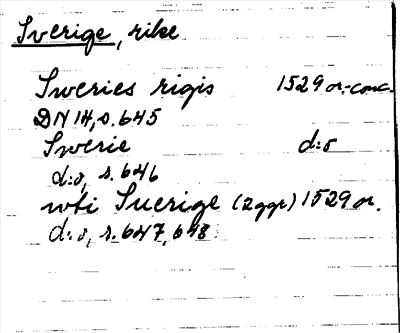 Sverige, rike
Sweries rigis 1529 or.-conc.
DN 14, s. 645
Swerie d:o
d:o, s. 646
wti Suerige (2 ggr) 1529 or.
d:o, s. 647, 648